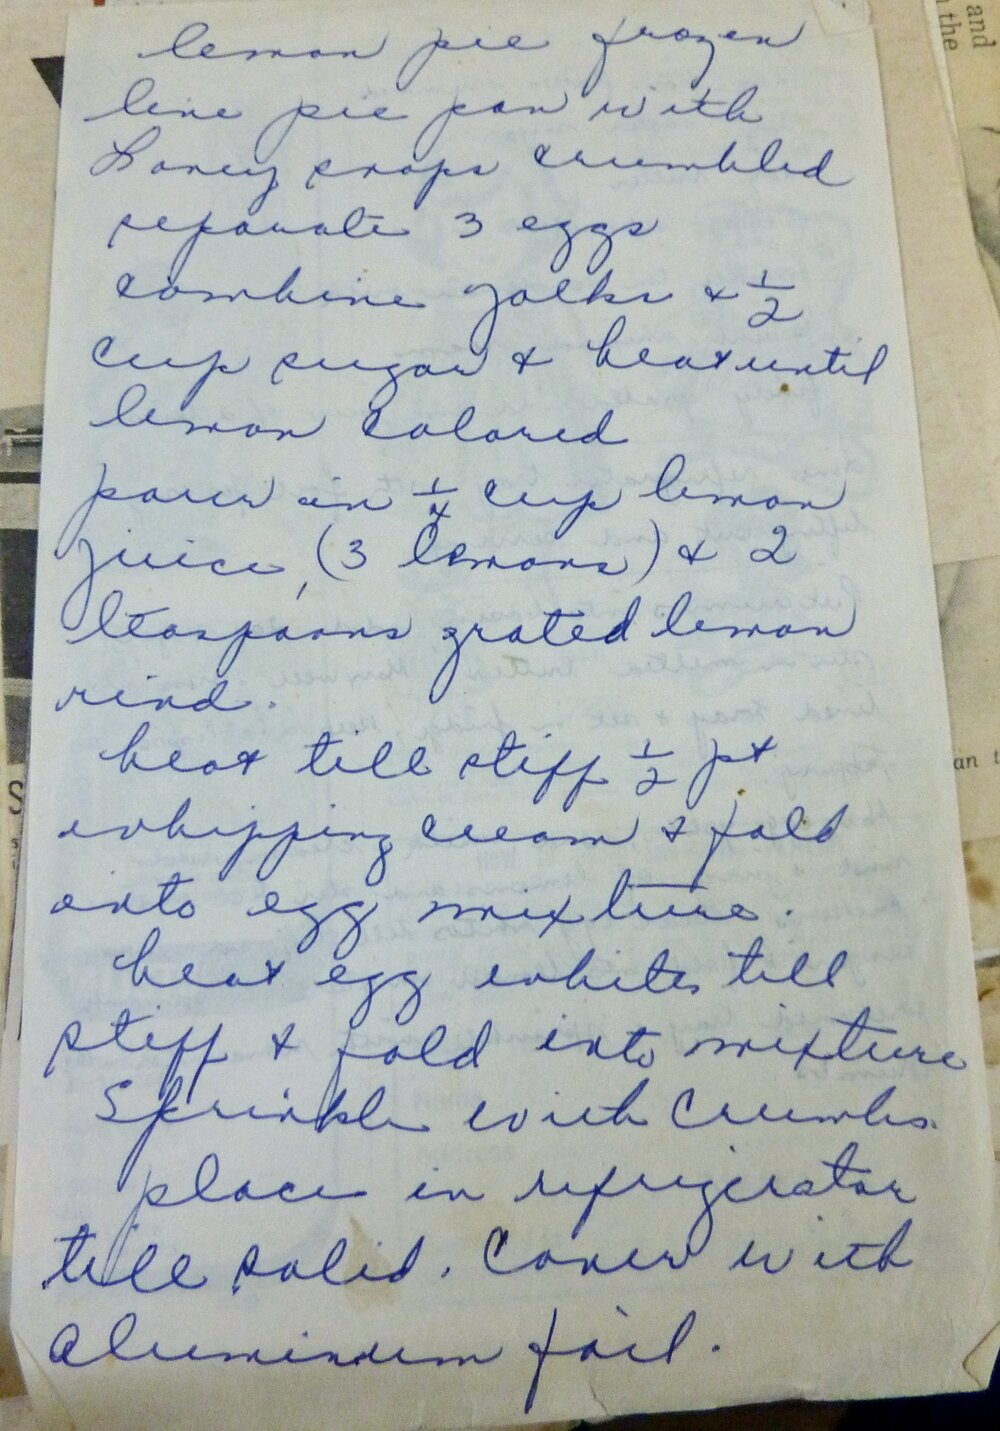 lemon pie frozen
line pie pan with
Honey snaps crumbled
separate 3 eggs
combine yolks & 1/2
cup sugar & beat until
lemon colored
pour in 1/4 cup lemon
juice, (3 lemons) & 2
teaspoons grated lemon
rind.
beat till stiff 1/2 pt
whipping cream & fold
into egg mixture.
beat egg whites till
stiff & fold into mixture
Sprinkle with Crumbs.
place in refrigerator
till solid. Cover with
aluminum foil.
and
the
an t
S